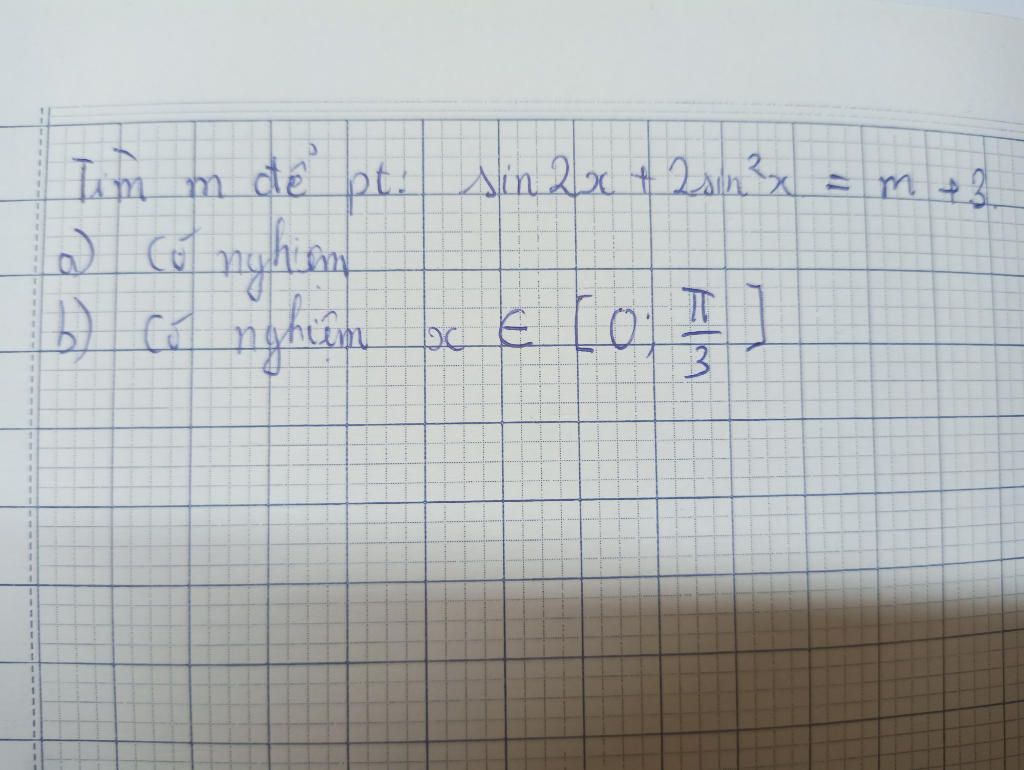 Tìm m để pt: sin2x + 2sin²x = m + 3.
a) Có nghiệm
b) Có nghiệm x ∈ [0; π/3]